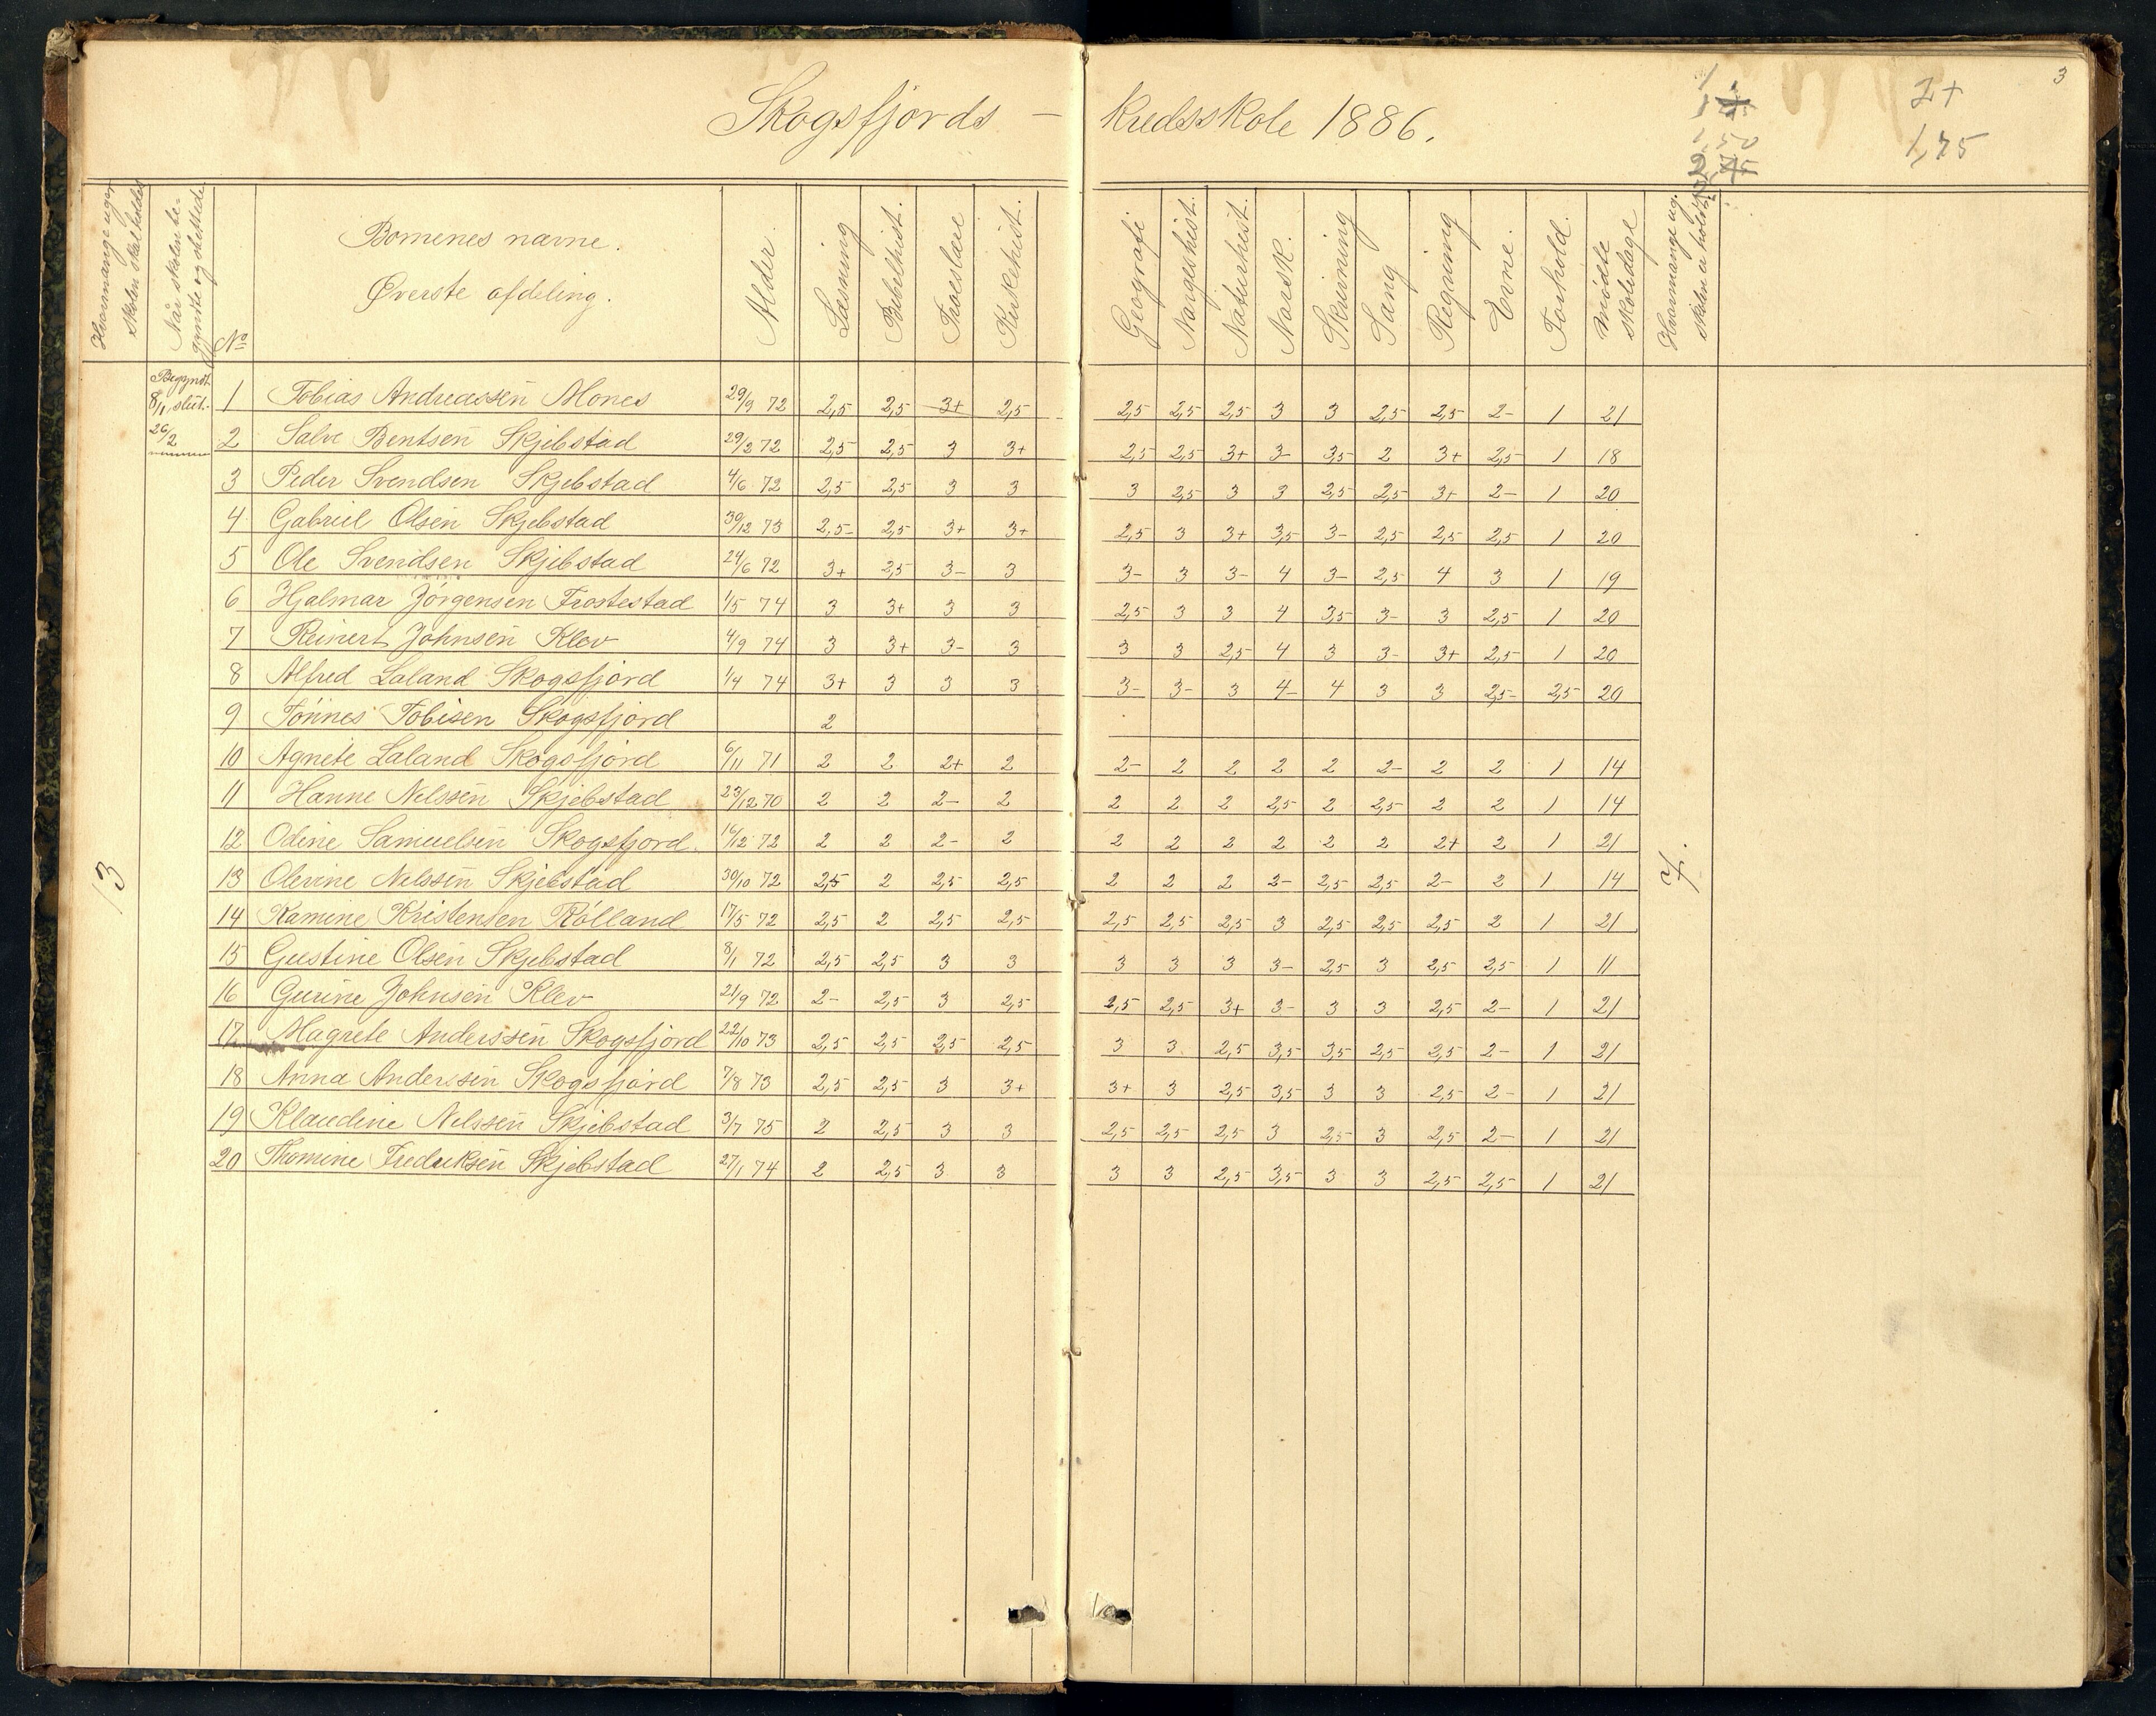 3
Skogsfjords – Kredsskole 1886.
2+
1,75
Hvormange uger skolen skal holdes
Når skolen begyndte og sluttede
No
Børnenes navne. Øverste afdeling.
Alder.
Læsning
Bibelhist.
Troeslære
Kirkehist.
Geografi
Norgeshist.
Naturhist.
Norsk.
Skrivning
Sang
Regning
Evne.
Forhold.
Mødte skoledage
Hvormange ug. skolen er holdt
Begyndt 8/1, slut. 26/2
13
7.
1 Tobias Andreassen Mones 29/9 72 2,5 2,5 3+ 2,5 2,5 2,5 2,5 3 3 2,5 2,5 2- 1 21
2 Salve Bentsen Skjebstad 29/2 72 2,5 2,5 3 3+ 2,5 2,5 3+ 3- 3,5 2 3+ 2,5 1 18
3 Peder Svendsen Skjebstad 4/6 72 2,5 2,5 3 3 3 2,5 3 3 2,5 2,5 3+ 2- 1 20
4 Gabriel Olsen Skjebstad 30/12 73 2,5- 2,5 3+ 3+ 2,5 3 3+ 3,5 3- 2,5 2,5 2,5 1 20
5 Ole Svendsen Skjebstad 24/6 72 3+ 2,5 3- 3 3- 3 3- 4 3- 2,5 4 3 1 19
6 Hjalmar Jörgensen Frostestad 1/5 74 3 3+ 3 3 2,5 3 3 4 3,5 3- 3 2,5 1 20
7 Reinert Johnsen Klev 4/9 74 3 3+ 3- 3 3 3 2,5 4 3 3- 3+ 2,5 1 20
8 Alfred Laland Skogsfjord 1/4 74 3+ 3 3 3 3- 3- 3 4- 4 3 3 2,5- 2,5 20
9 Tönnes Tobisen Skogsfjord 2
10 Agnete Laland Skogsfjord 6/11 71 2 2 2+ 2 2- 2 2 2 2 2- 2 2 1 14
11 Hanne Nelssen Skjebstad 23/12 70 2 2 2- 2 2 2 2 2,5 2 2,5 2 2 1 14
12 Odine Samuelsen Skogsfjord. 16/12 72 2 2 2- 2 2 2 2 2 2 2 2+ 2 1 21
13 Olevine Nelssen Skjebstad 30/10 72 2,5 2 2,5 2,5 2 2 2 2- 2,5 2,5 2- 2 1 14
14 Kamine Kristensen Rölland 17/5 72 2,5 2 2,5 2,5 2,5 2,5 2,5 3 2,5 2,5 2,5 2 1 21
15 Gustine Olsen Skjebstad 8/1 72 2,5 2,5 3 3 3 3 3 3- 2,5 3 2,5 2,5 1 11
16 Gurine Johnsen Klev 21/9 72 2- 2,5 3 2,5 2,5 2,5 3+ 3- 3 3 2,5 2- 1 21
17 Magrete Anderssen Skogsfjord 22/10 73 2,5 2,5 2,5 2,5 3 3 2,5 3,5 3,5 2,5 2,5 2- 1 21
18 Anna Anderssen Skogsfjord 7/8 73 2,5 2,5 3 3+ 3+ 3 2,5 3,5 3 3 2,5 2- 1 21
19 Klaudine Nelssen Skjebstad 3/7 75 2 2,5 3 3 2,5 2,5 2,5 3 2,5 3 2,5 2- 1 21
20 Thomine Fredriksen Skjebstad 27/1 74 2 2,5 3 3 3 3 2,5 3,5 3 3 2,5 2,5 1 21